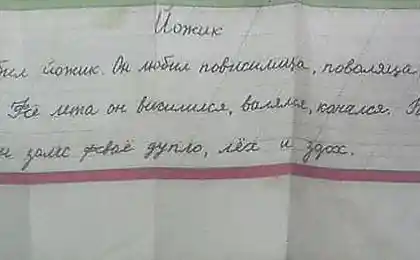 Йожик
был йожик. Он любил повисилица, поволяца,
Fсё лета он висилился, валялся, качался.
залес своё дупло, лёх и здох.